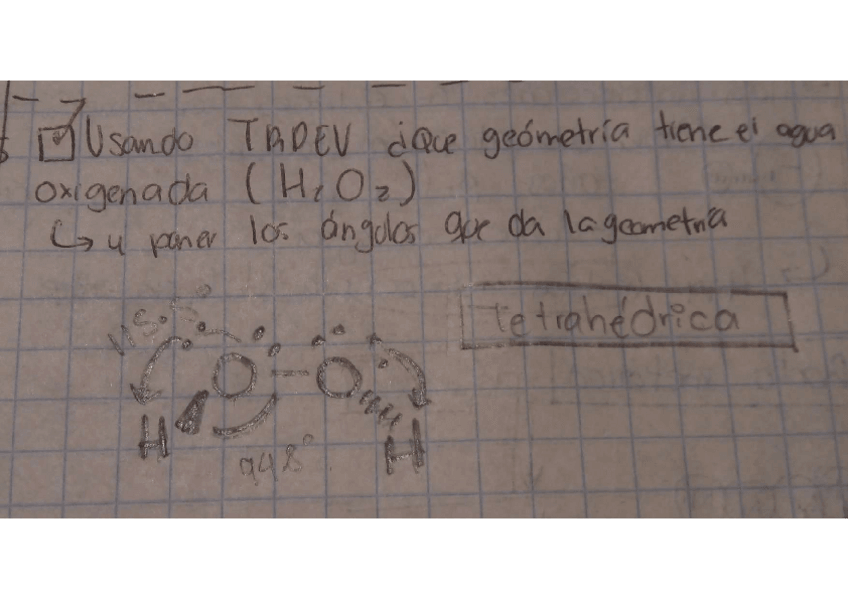 Usando TRDEV ¿Que geómetría tiene el agua
oxigenada (H2O2)
↳ y poner los ángulos que da la geometría
115.5°
Tetrahédrica
O - O
H H
94.8°